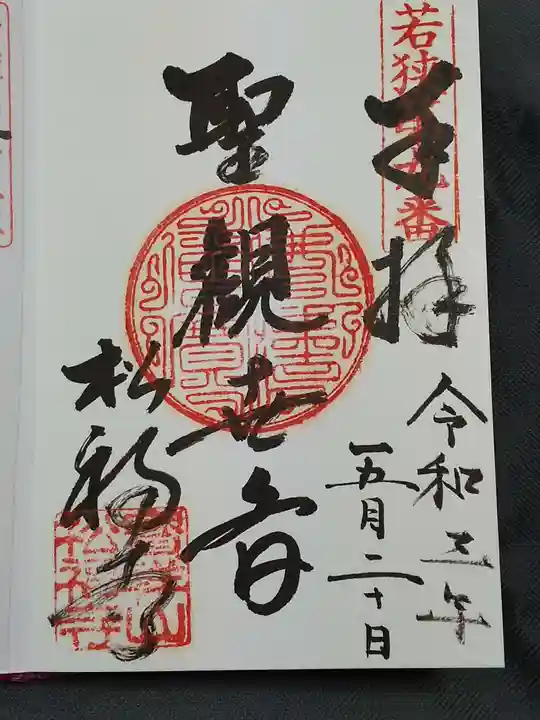 若狭
九番
奉拝
令和五年
五月二十日
聖観世音
松福寺